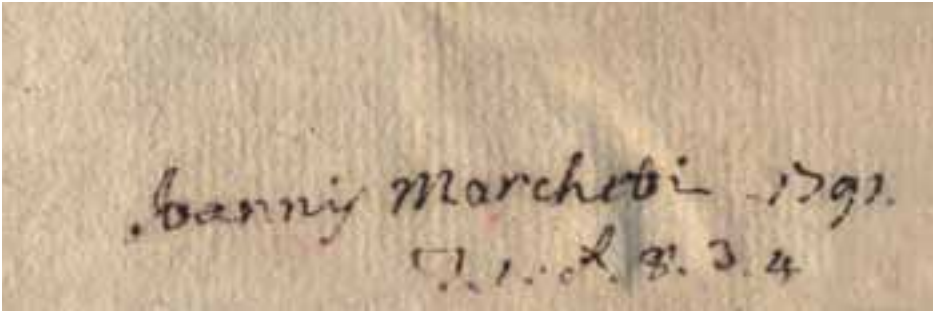 Joannis Marcheti 1791.
8. 3. 4